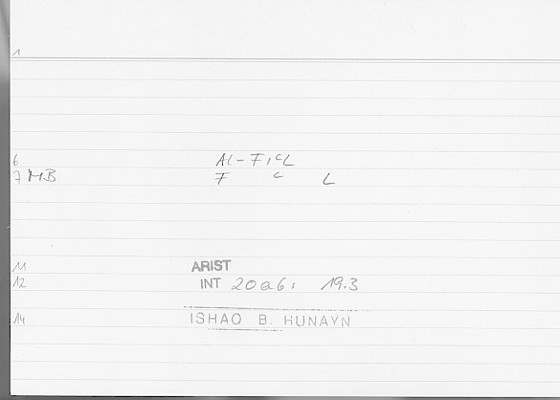 1
6 Al-FiʿL
7 MB F ʿ L
11 ARIST
12 INT 20a6; 19.3
14 ISHAQ B. HUNAYN